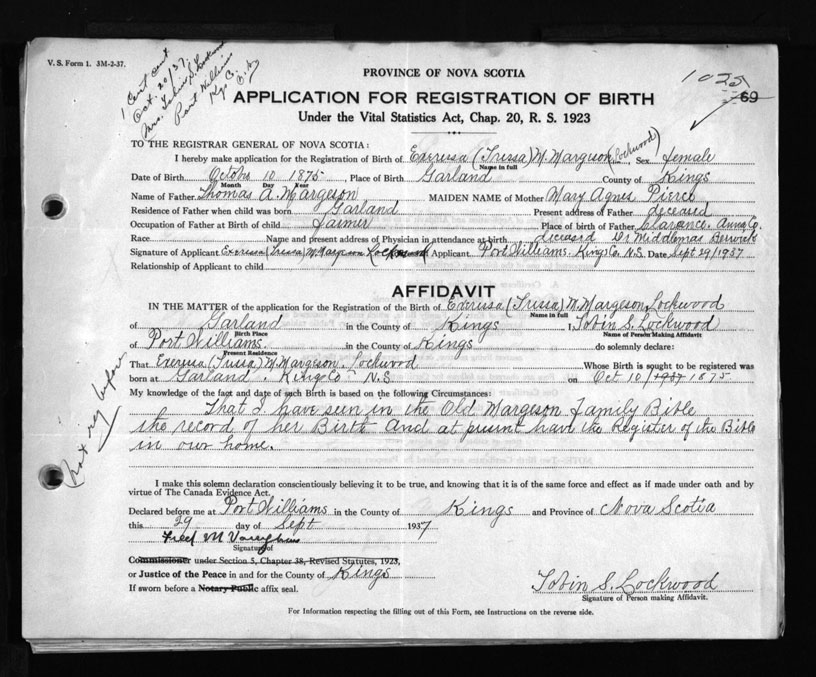 V. S. Form 1. 3M-2-37.
1 Cert sent
Oct. 20/37.
Mrs. Tobin S. Lockwood
Port Williams
PROVINCE OF NOVA SCOTIA
1025
69
APPLICATION FOR REGISTRATION OF BIRTH
Under the Vital Statistics Act, Chap. 20, R. S. 1923
TO THE REGISTRAR GENERAL OF NOVA SCOTIA:
I hereby make application for the Registration of Birth of Exerusa (Trusa) M. Margeson (Lockwood) Sex female
Name in full
Date of Birth October 10 1875, Place of Birth Garland County of Kings
Month Day Year
Name of Father Thomas A. Margeson MAIDEN NAME of Mother Mary Agnes Pierce
Residence of Father when child was born Garland Present address of Father diceased
Occupation of Father at Birth of child farmer Place of birth of Father Clarance. Anna Co.
Race Name and present address of Physician in attendance at birth diceased Dr Middlemas Berwick
Signature of Applicant Exerusa (Trusa) M Margeson Lockwood Applicant Port Williams. Kings Co. N.S. Date Sept 29/1937
Relationship of Applicant to child
AFFIDAVIT
IN THE MATTER of the application for the Registration of the Birth of Exerusa (Trusa) M. Margeson Lockwood
Name in full
of Garland in the County of Kings I, Tobin S. Lockwood
Birth Place Name of Person Making Affidavit
of Port Williams. in the County of Kings do solemnly declare:
Present Residence
That Exerusa (Trusa) M. Margeson. Lockwood Whose Birth is sought to be registered was
born at Garland. Kings Co N.S. on Oct 10/1937 1875
My knowledge of the fact and date of such Birth is based on the following Circumstances:
That I have seen in the Old Margeson Family Bible
the record of her Birth And at present have the Register of the Bible
in our home.
(not reg before
I make this solemn declaration conscientiously believing it to be true, and knowing that it is of the same force and effect as if made under oath and by
virtue of The Canada Evidence Act.
Declared before me at Port Williams in the County of Kings and Province of Nova Scotia
this 29 day of Sept 1937
Fred M Vaughan
Signature of
Commissioner under Section 5, Chapter 38, Revised Statutes, 1923,
or Justice of the Peace in and for the County of Kings
If sworn before a Notary Public affix seal.
Tobin S. Lockwood
Signature of Person making Affidavit.
For Information respecting the filling out of this Form, see Instructions on the reverse side.